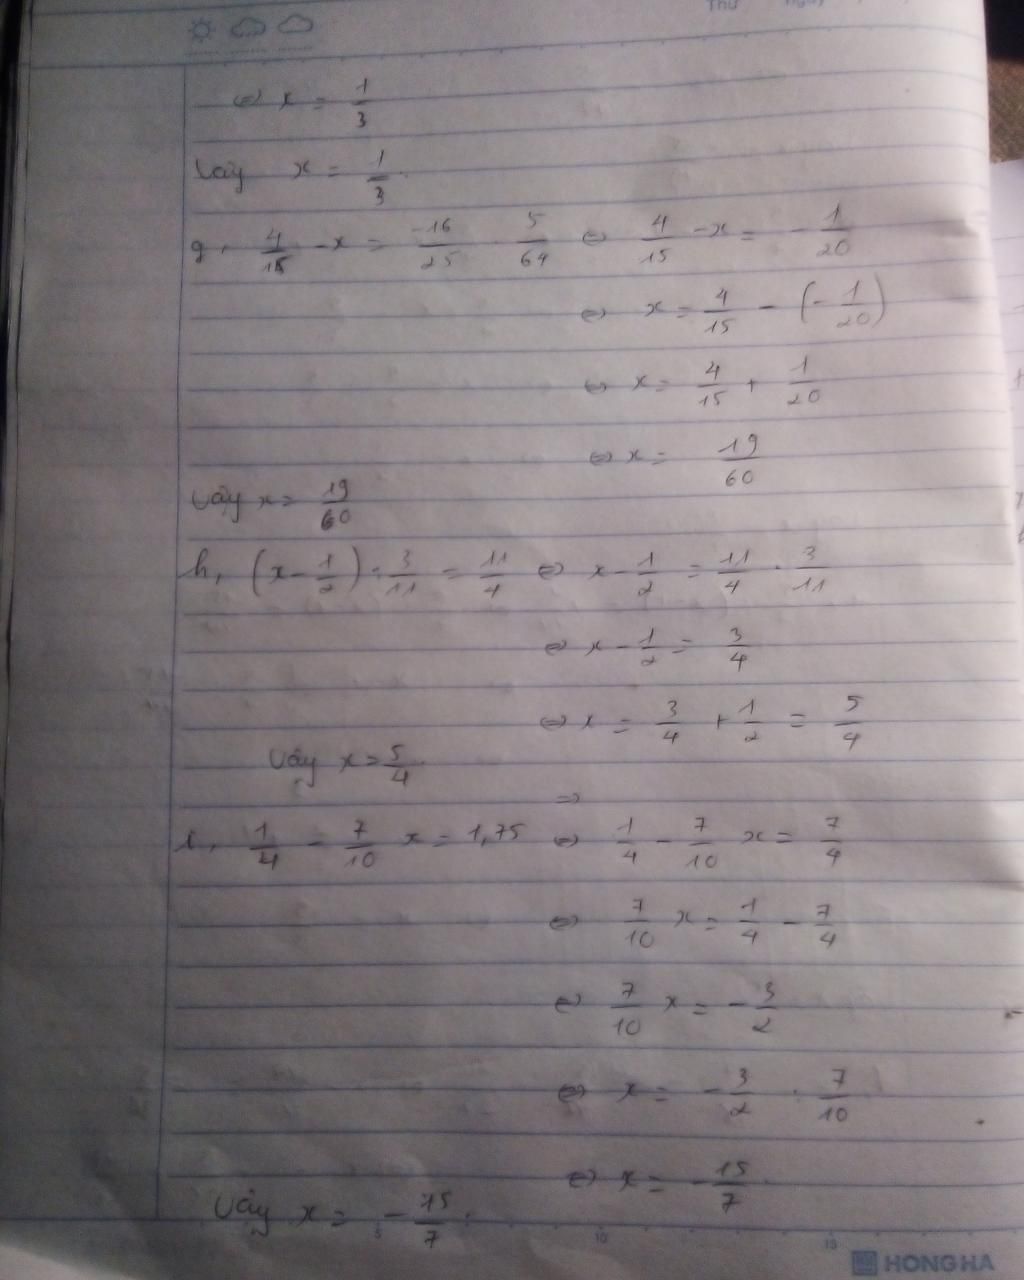 Thứ ngày
⇔ x = 1/3
Vậy x = 1/3.
g, 4/15 - x = -16/25 . 5/64 ⇔ 4/15 - x = - 1/20
⇔ x = 4/15 - (- 1/20)
⇔ x = 4/15 + 1/20
⇔ x = 19/60
Vậy x = 19/60
h, (x - 1/2) : 3/11 = 11/4 ⇔ x - 1/2 = 11/4 . 3/11
⇔ x - 1/2 = 3/4
⇔ x = 3/4 + 1/2 = 5/4
Vậy x = 5/4.
⇒
i, 1/4 = 7/10 x = 1,75 ⇔ 1/4 - 7/10 x = 7/4
⇔ 7/10 x = 1/4 - 7/4
⇔ 7/10 x = - 3/2
⇔ x = - 3/2 : 7/10
⇔ x = - 15/7.
Vậy x = - 15/7.
5 10 15
HONG HA